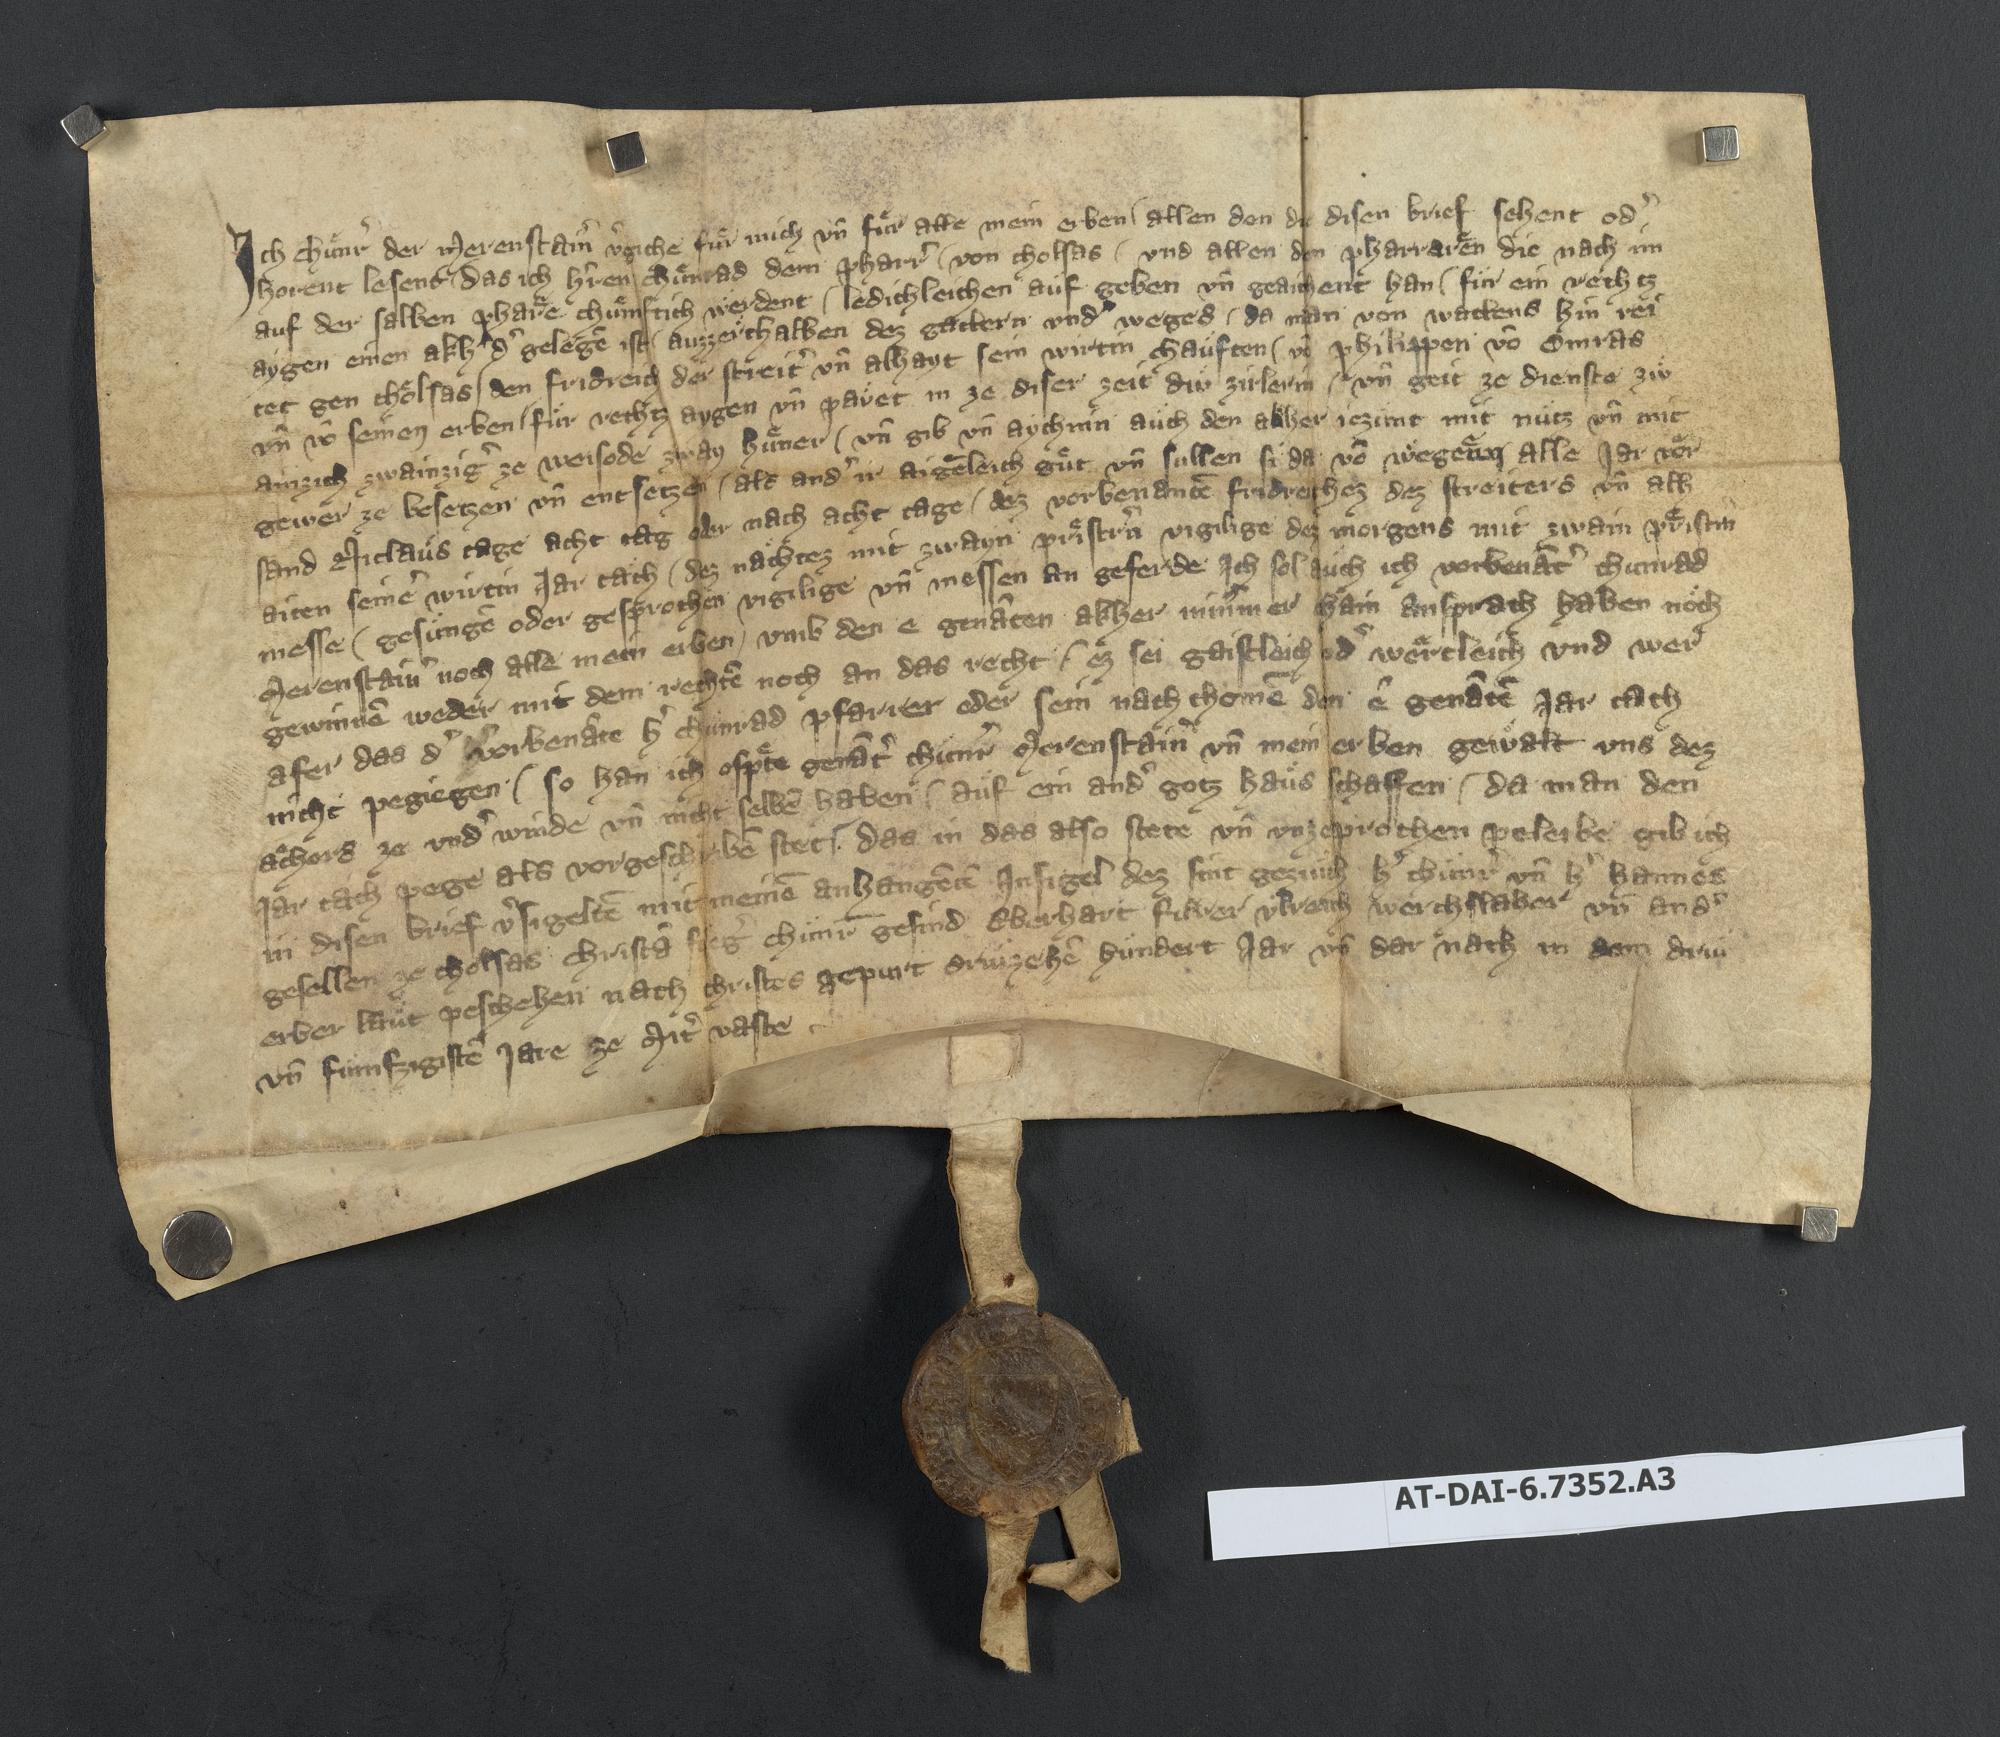 Ich chuͤnr̄ der Merenstain̄ v̄giche fuͤr mich vn̄ fuͤr alle mein erben / allen den die disen brief sehent od̄
horent lesent / das ich h̄ren Chuͤnrad dem pharr̄ / von cholsas / vnd allen den pharraren die nach im
auf der salben pharē chuͤmftich werdent / ledichleichen auf geben vn̄ geaichent han / fuͤr ein rechtz
aygen einen akh̄ d̄ gelegē ist / auzzerthalben dez gattern vnd̄ weges / da man von wattens hin rei
tet gen cholsas / den fridreich der streit̄ vn̄ alhayt sein wirtin chauften / vō philippen vō Omras
vn̄ vō seinen erben / fuͤr rechtz aygen vn̄ pawet in ze diser zeit diw zirlerin / vn̄ geit ze dienste zw
ainzich zwainziḡ ze weisode zway huͤner / vn̄ gib vn̄ aychnin auch den akher iezunt mit nutz vn̄ mit
gewer ze besetzen vn̄ entsetzen / als and̄ ir aigēleich guͤt vn̄ sullen si da vō wegen alle Jar vor
sand Niclaus tage acht tag oder nach acht tage / dez vorbenantē fridreichez dez streiters vn̄ alh
aiten seinē wirtin Jar tach / dez nachtez mit zwayn pristrn̄ vigilige dez morgens mit zwain pristin
messe / gesungē oder gesprochen vigilige vn̄ messen an geferde Ich sol auch ich vorbenāt̄ chunrad
Merenstain̄ noch alle mein erben / vmb den e genāten akher nimmer chain ansprach haben noch
gewinnē weder mit dem rechtē noch an das recht / ez sei gaistleich od̄ wertleich vnd wer
afer das d̄ vorbenāte h̄ chunrad pfarrer oder sein nach chomē den ē genātē Jar tach
nicht pegiegen / so han ich ofptē genāt̄ chunr̄ Merenstain̄ vn̄ mein erben gewalt vns dez
achers ze vnd̄ winde vn̄ nicht selbē haben / auf ein and̄ gotz haus schaffen / da man den
Jar tach pege als vorgeschribē stet / das in das also stete vn̄ vnzeprochen peleibe gib ich
in disen brief v̄sigeltē mit meinē anhangētē Insigel dez sint gezuich h̄ chunr̄ vn̄ h̄ hannes
gesellen ze cholsas christā chunr̄ gesind Eberhart vlreich werchslaher vn̄ and̄
erber laut peschehen nach christes gepurt driuzehē hundert Jar vn̄ dar nach in dem driu
vn̄ fumfzigistē Jare ze Mit̄ vaste
AT-DAI-6.7352.A3